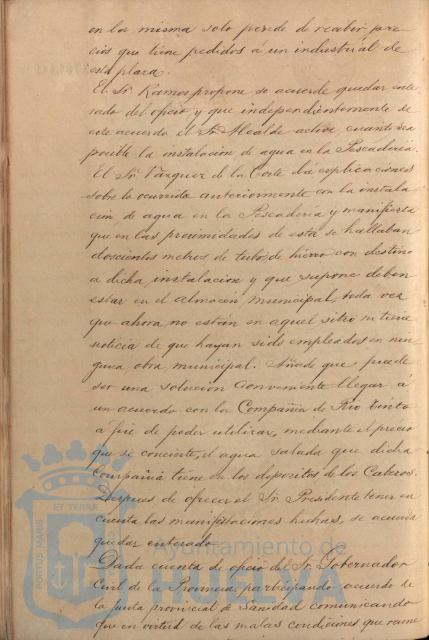 en la misma solo pende de recibir pre
cios que tiene pedidos á un industrial de
esta plaza.
El Sr. Ramos propone se acuerde quedar ente
rado del oficio y que independientemente de
este acuerdo el Sr. Alcalde active cuanto sea
posible la instalacion de agua en la Pescaderia.
El Sr. Vazquez de la Corte dá explicaciones
sobre lo ocurrido anteriormente con la instala
cion de agua en la Pescaderia y manifiesta
que en las proximidades de esta se hallaban
doscientos metros de tubo de hierro con destino
a dicha instalacion y que supone deben
estar en el almacen municipal, toda vez
que ahora no están en aquel sitio ni tiene
noticia de que hayan sido empleados en nin
guna obra municipal. Añade que puede
ser una solucion conveniente llegar á
un acuerdo con la Compañia de Rio Tinto
á fin de poder utilizar, mediante el precio
que se concierte, el agua salada que dicha
Compañia tiene en los depositos de los Cabezos.
Despues de ofrecer el Sr. Presidente tener en
cuenta las manifestaciones hechas, se acuerda
quedar enterado.
Dada cuenta de oficio del Sr. Gobernador
Civil de la Provincia, participando acuerdo de
la Junta provincial de Sanidad comunicando
que en virtud de las malas condiciones que reune
PORTUS MARIS ET TERRAE
Ayuntamiento de
HUELVA